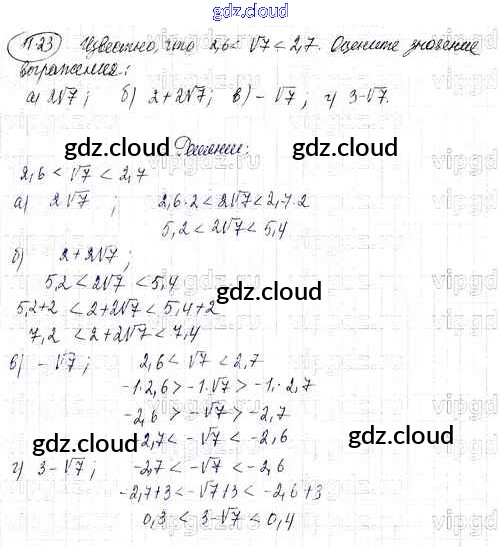 gdz.cloud
1123 Известно, что 2,6 < √7 < 2,7. Оцените значение
выражения:
а) 2√7; б) 2+2√7; в) -√7; г) 3-√7.
Решение:
gdz.cloud gdz.cloud
2,6 < √7 < 2,7
а) 2√7; 2,6·2 < 2√7 < 2,7·2
5,2 < 2√7 < 5,4
б) 2+2√7;
5,2 < 2√7 < 5,4
gdz.cloud
5,2+2 < 2+2√7 < 5,4+2
7,2 < 2+2√7 < 7,4
в) -√7; 2,6 < √7 < 2,7
-1·2,6 > -1·√7 > -1·2,7
-2,6 > -√7 > -2,7
gdz.cloud gdz.cloud
-2,7 < -√7 < -2,6
г) 3-√7; -2,7 < -√7 < -2,6
-2,7+3 < -√7+3 < -2,6+3
0,3 < 3-√7 < 0,4